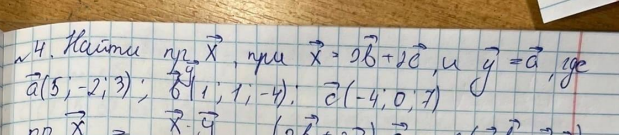 №4. Найти пр. x⃗, при x⃗ = 2b⃗ + 2c⃗, и y⃗ = a⃗, где
y⃗
a⃗(5; -2; 3); b⃗(1; 1; -4); c⃗(-4; 0; 7)
x⃗ = x⃗ · y⃗